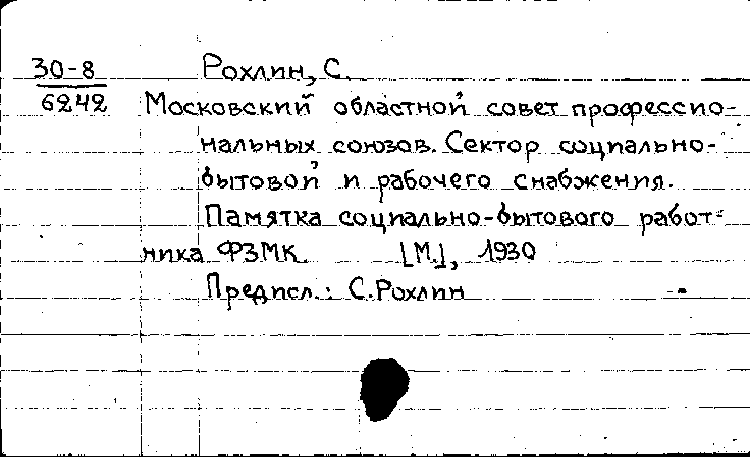 30-8 Рохлин, С.
6242 Московский областной совет профессио-
нальных союзов. Сектор социально-
бытовой и рабочего снабжения.
Памятка социально-бытового работ-
ника ФЗМК. [М.], 1930
Предисл.: С.Рохлин